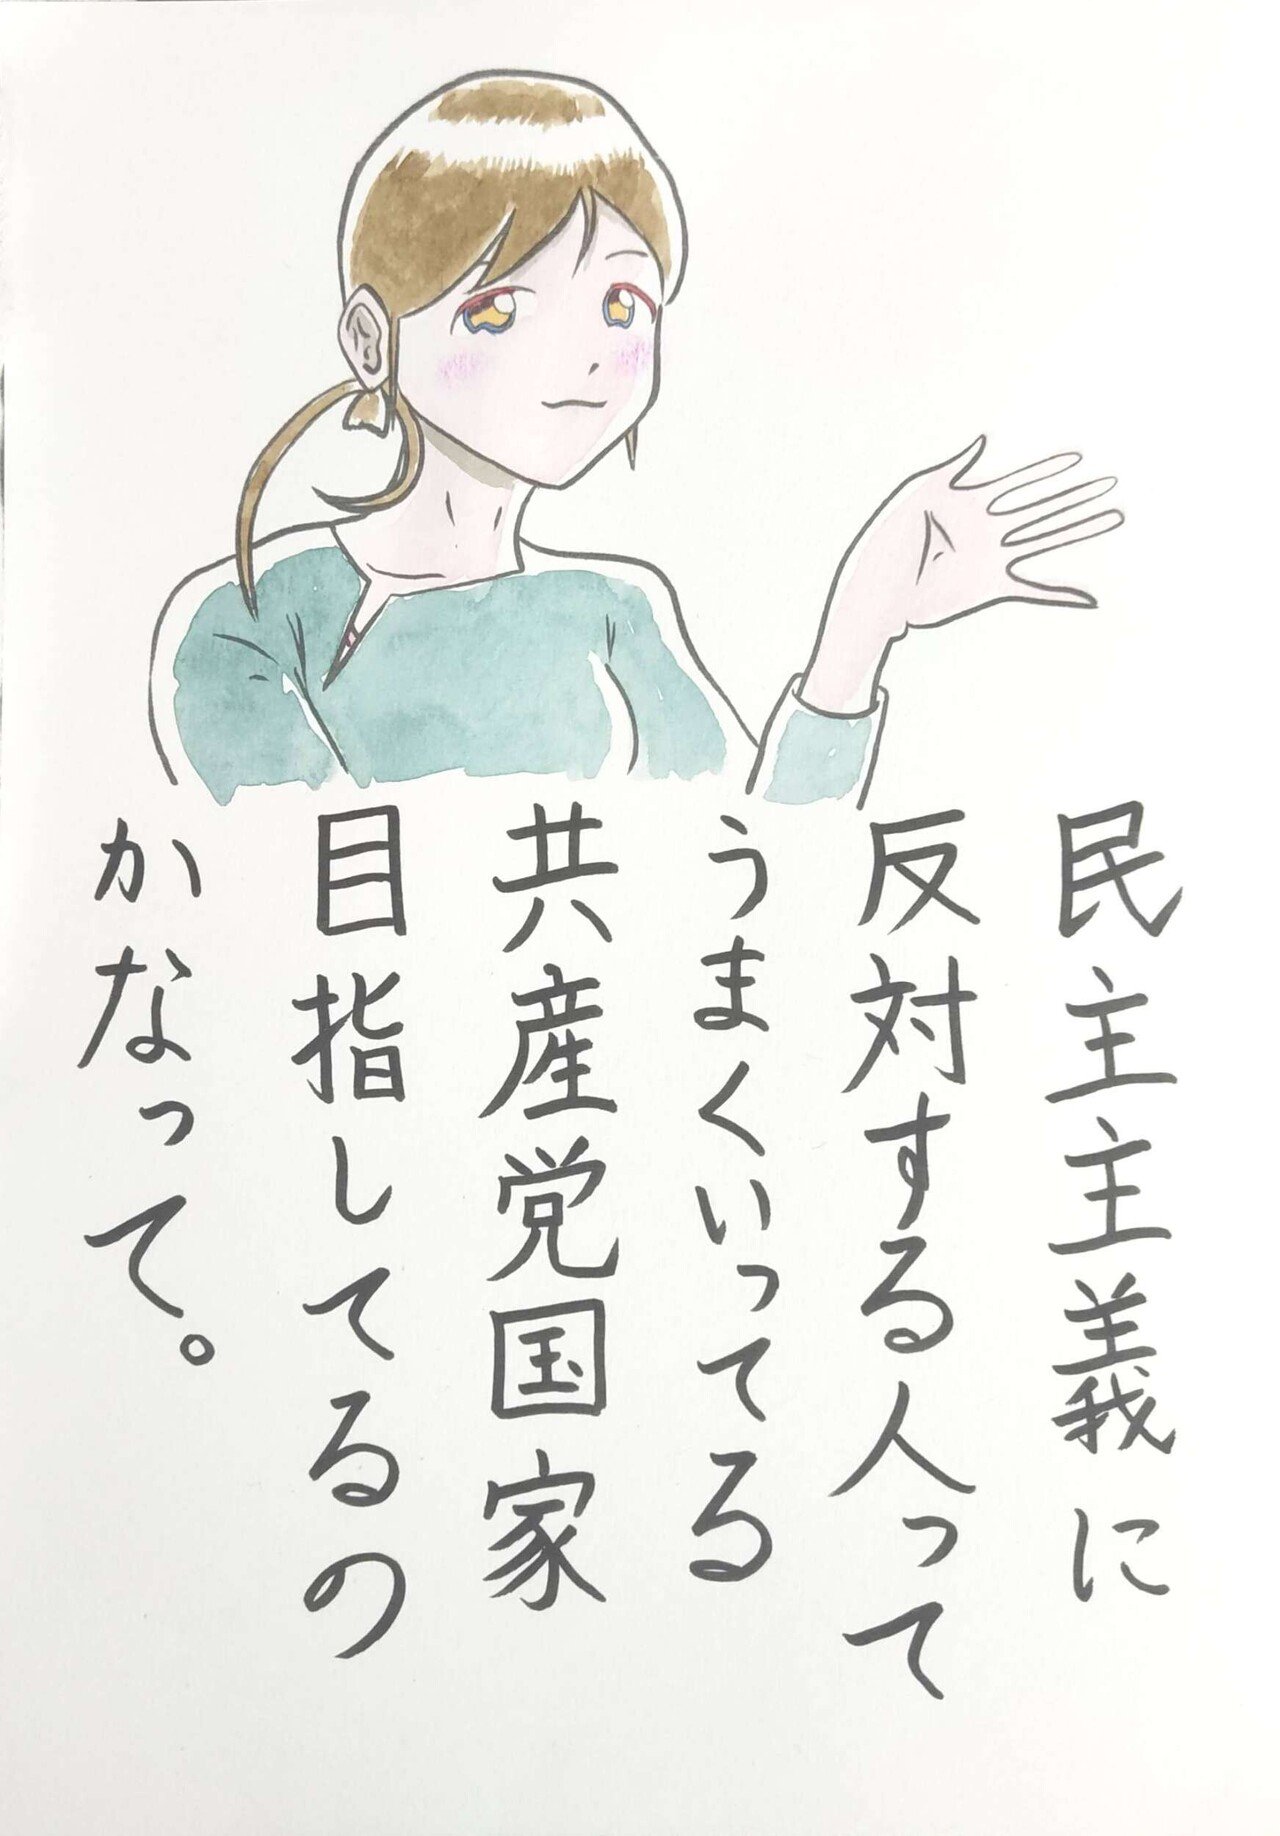 民主主義に
反対する人って
うまくいってる
共産党国家
目指してるの
かなって。